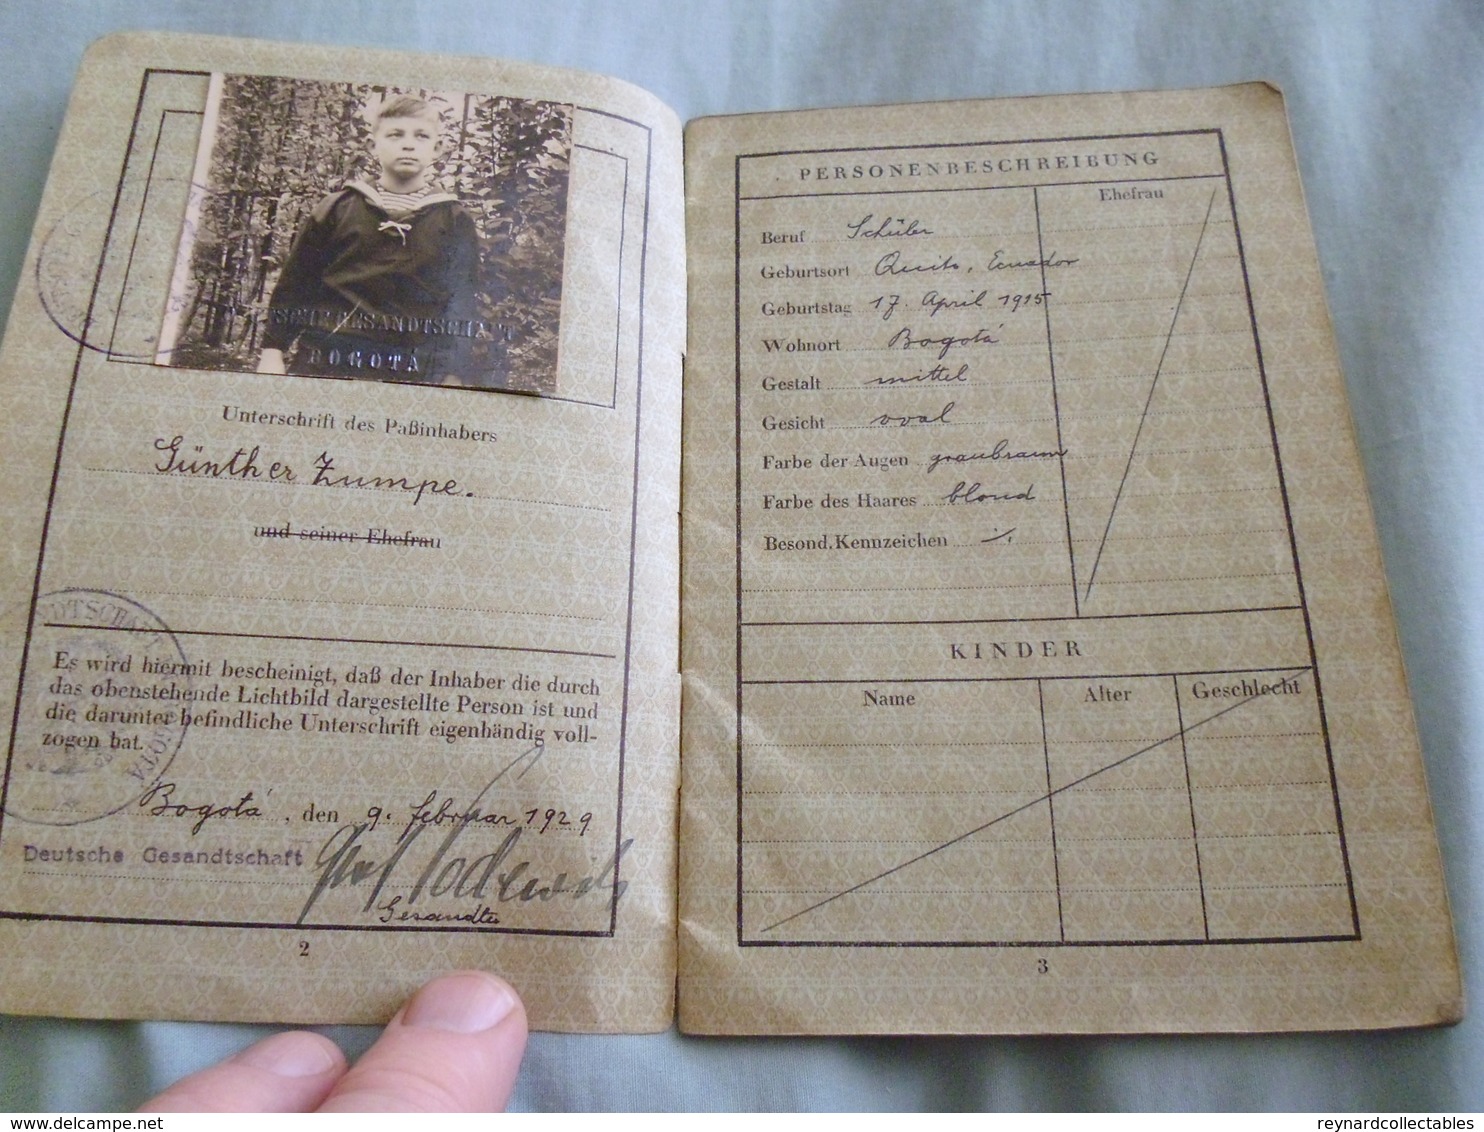 GESANDTSCHAFT
BOGOTÁ
Unterschrift des Paßinhabers
Günther Zumpe.
und seiner Ehefrau
Es wird hiermit bescheinigt, daß der Inhaber die durch
das obenstehende Lichtbild dargestellte Person ist und
die darunter befindliche Unterschrift eigenhändig voll-
zogen hat.
Bogotá, den 9. februar 1929
Deutsche Gesandtschaft
Gesandter
2
PERSONENBESCHREIBUNG
Ehefrau
Beruf Schüler
Geburtsort Quito, Ecuador
Geburtstag 17. April 1915
Wohnort Bogotá
Gestalt mittel
Gesicht oval
Farbe der Augen graubraun
Farbe des Haares blond
Besond. Kennzeichen
KINDER
Name Alter Geschlecht
3
www.delcampe.net
reynardcollectables